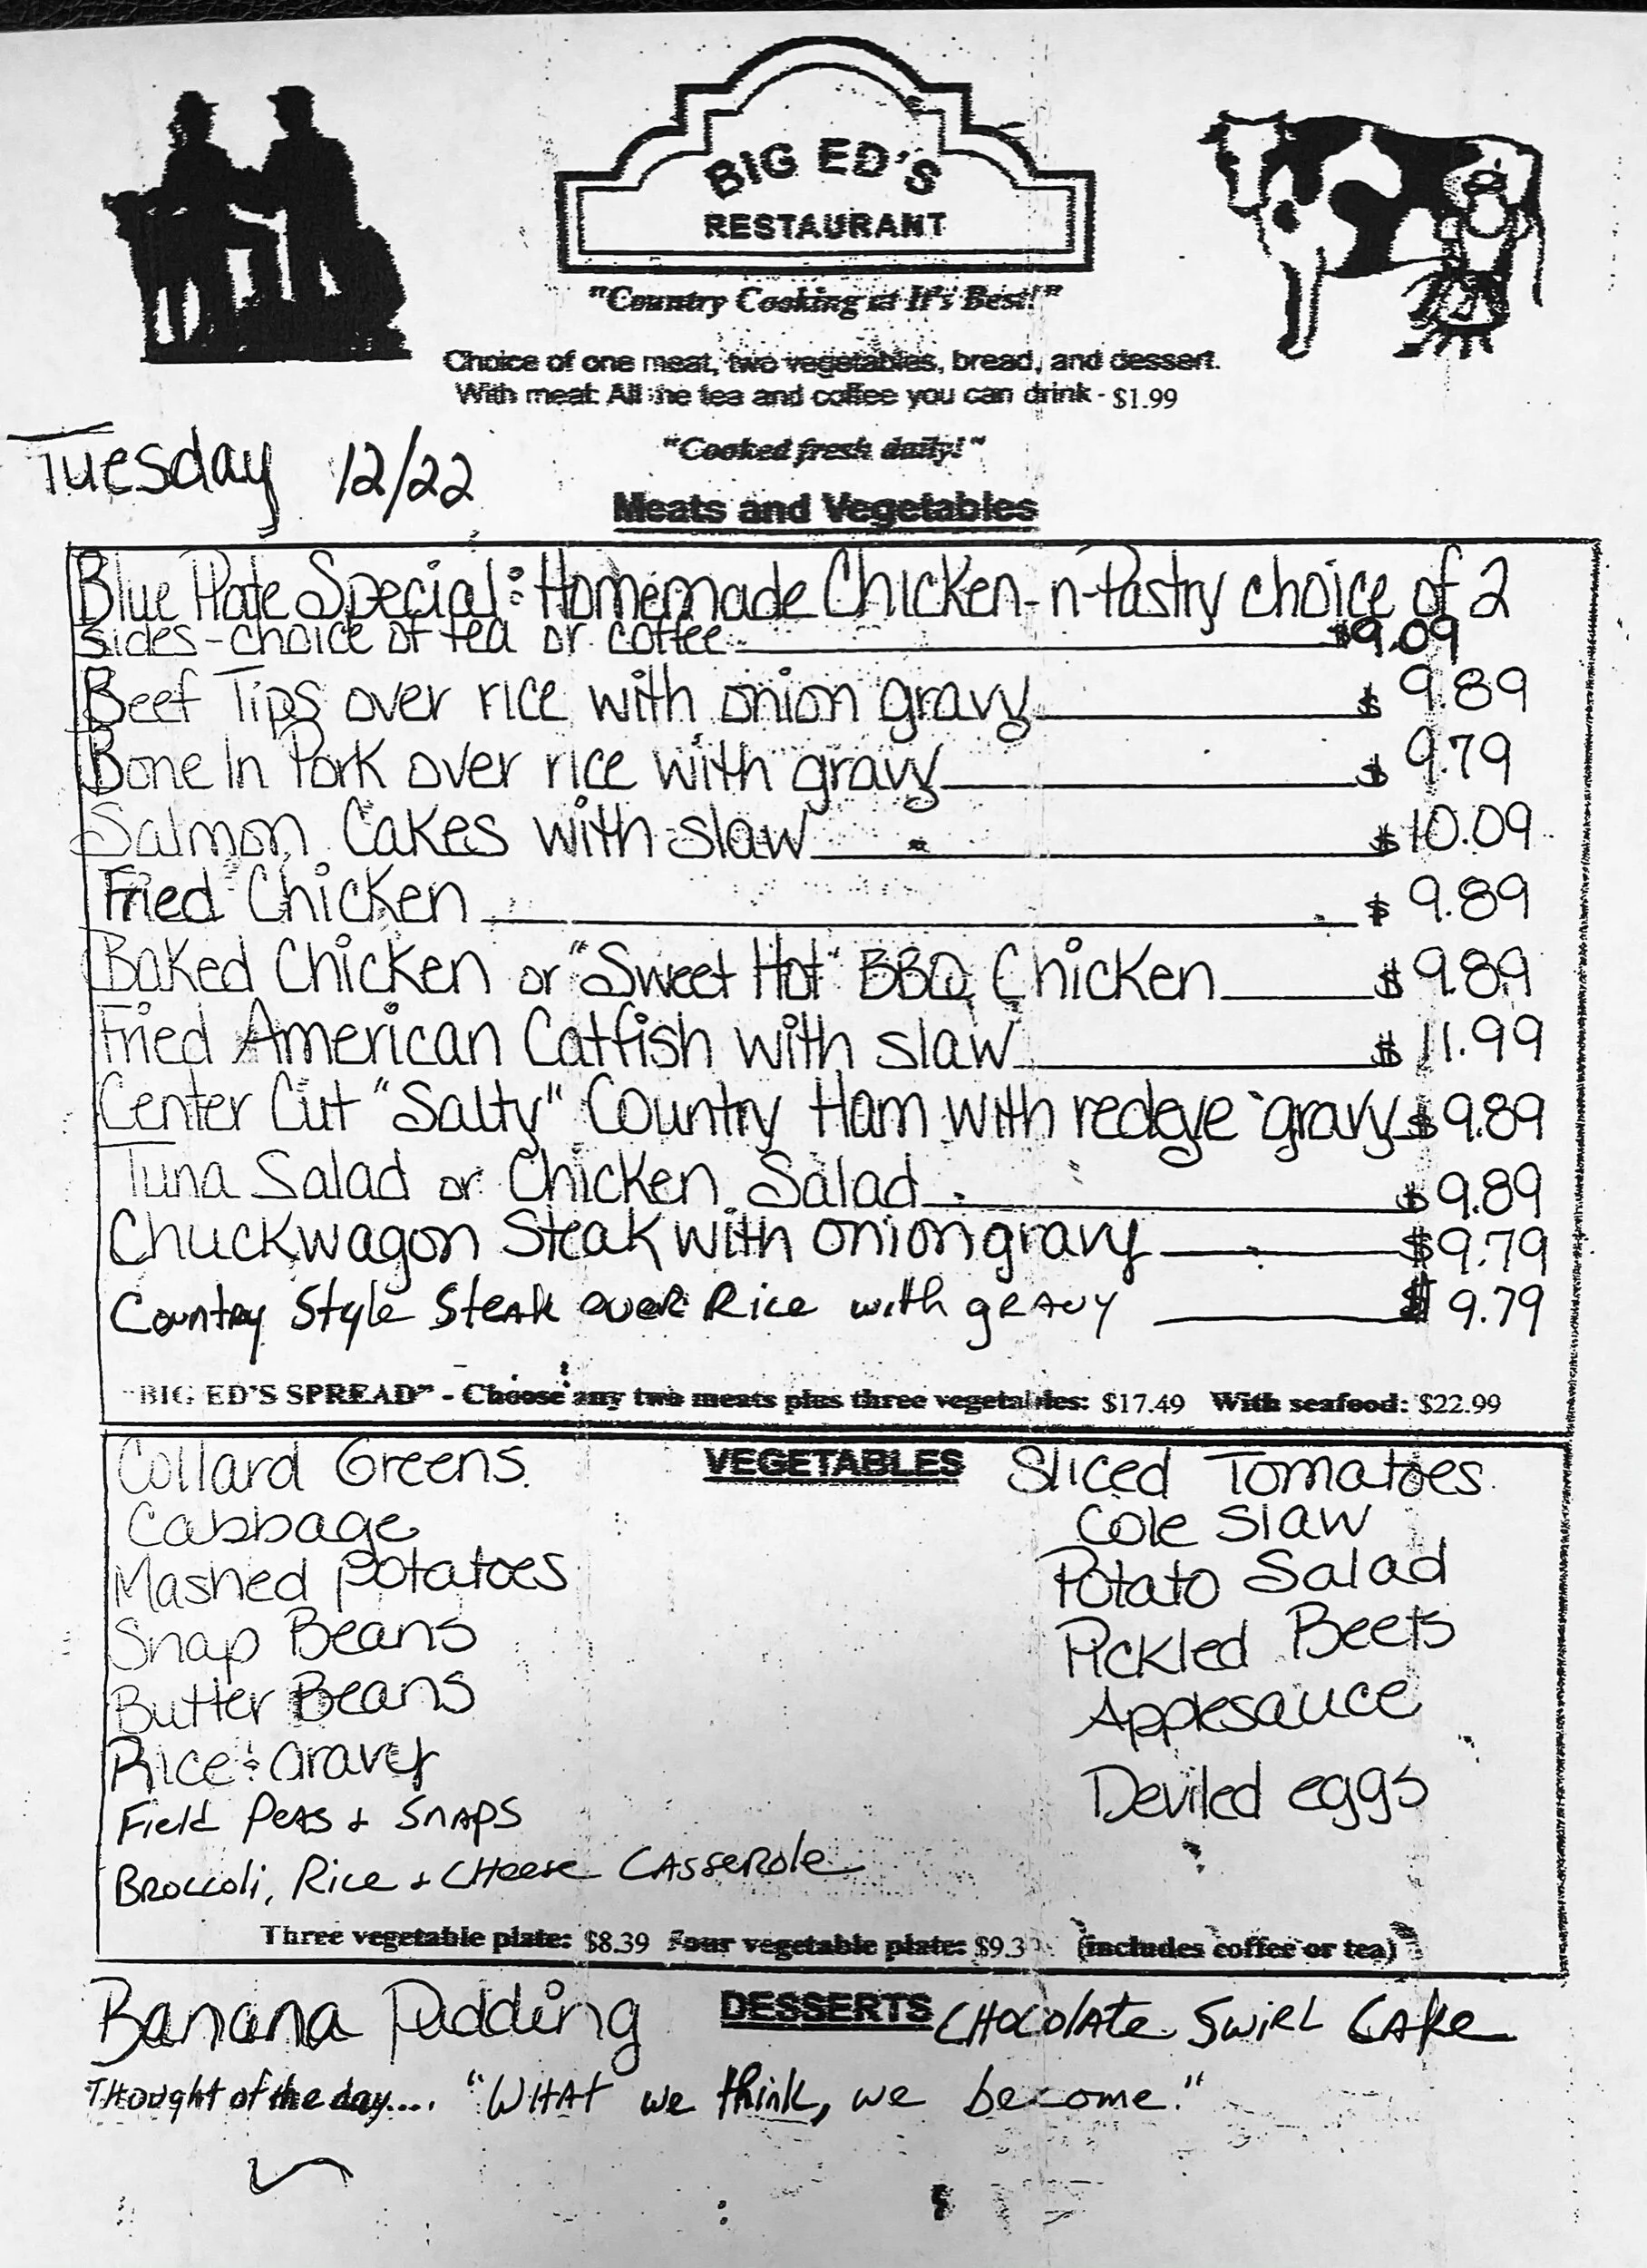 BIG ED'S
RESTAURANT
"Country Cooking at It's Best!"
Choice of one meat, two vegetables, bread, and dessert.
With meat: All the tea and coffee you can drink - $1.99
"Cooked fresh daily!"
Tuesday 12/22
Meats and Vegetables
Blue Plate Special: Homemade Chicken-n-Pastry choice of 2
sides - choice of tea or coffee $9.09
Beef Tips over rice with onion gravy $ 9.89
Bone In Pork over rice with gravy $ 9.79
Salmon Cakes with slaw $10.09
Fried Chicken $ 9.89
Baked Chicken or "Sweet Hot" BBQ Chicken $ 9.89
Fried American Catfish with slaw $ 11.99
Center Cut "Salty" Country Ham with redeye gravy $9.89
Tuna Salad or Chicken Salad $9.89
Chuckwagon Steak with onion gravy $9.79
Country Style Steak over Rice with gRAVY $ 9.79
"BIG ED'S SPREAD" - Choose any two meats plus three vegetables: $17.49 With seafood: $22.99
VEGETABLES
Collard Greens
Cabbage
Mashed potatoes
Snap Beans
Butter Beans
Rice & Gravy
Field Peas & SNAPS
BROCCOLi, Rice & CHeese CASSeROle
Sliced Tomatoes
Cole Slaw
Potato Salad
Pickled Beets
Applesauce
Deviled eggs
Three vegetable plate: $8.39 Four vegetable plate: (includes coffee or tea)
Banana Pudding DESSERTS CHOCOlATe SwiRL CAke
THought of the day.... "WHAt we think, we become."